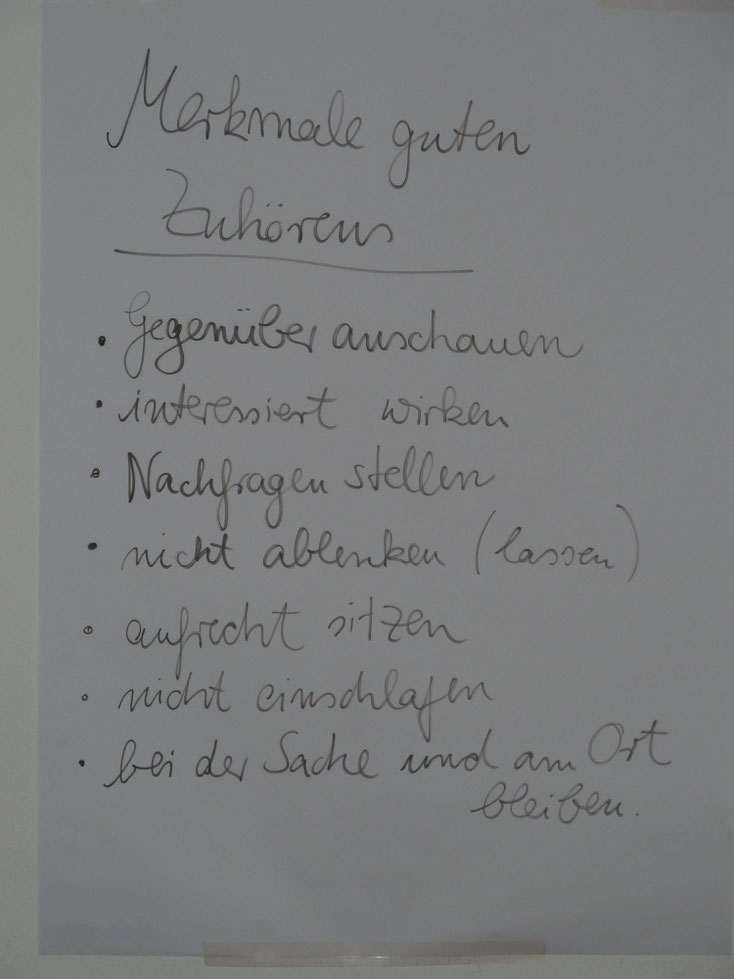 Merkmale guten
Zuhörens
• Gegenüber anschauen
• interessiert wirken
• Nachfragen stellen
• nicht ablenken (lassen)
• aufrecht sitzen
• nicht einschlafen
• bei der Sache und am Ort
bleiben.